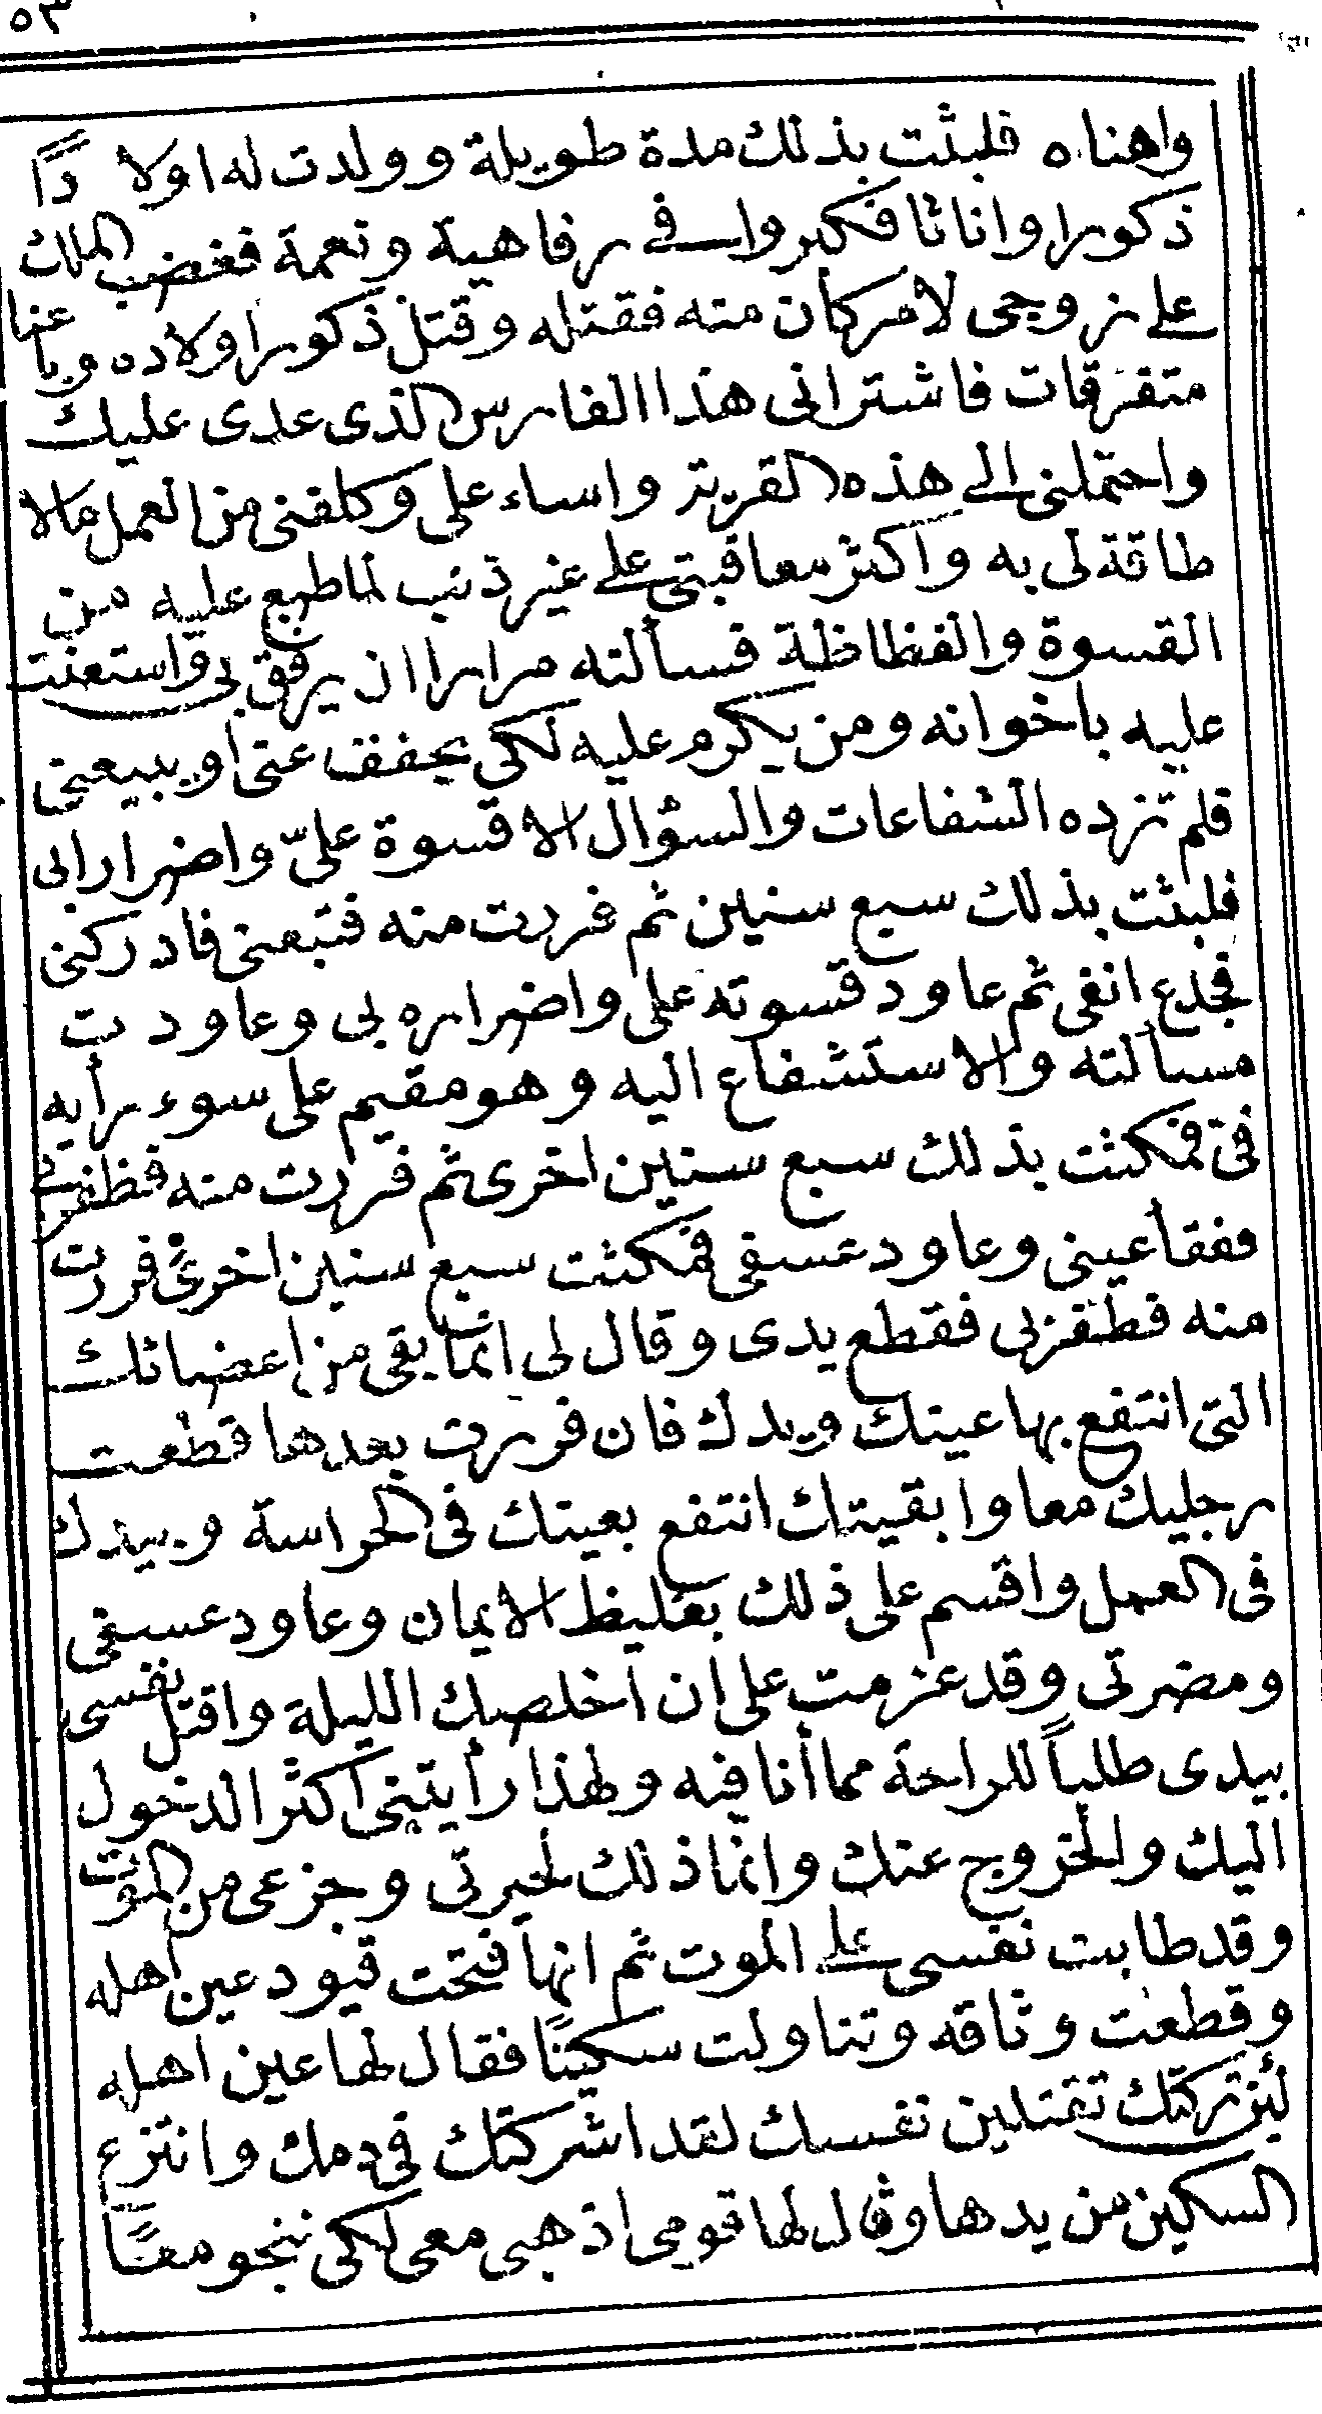 ٥٣
واهناه فلبثت بذلك مدة طويلة وولدت له اولا دًا
ذكورا واناثا فكبروا في رفاهية ونعمة فغضب الملك
على زوجى لامركان منه فقتله وقتل ذكورا ولاده وباعنا
متفرقات فاشترانى هذا الفارس الذى عدى عليك
واحتملنى الى هذه القرية واساء على وكلفنى من العمل مالا
طاقة لى به واكثر معاقبتى على غير ذنب لما طبع عليه من
القسوة والفظاظة فسألته مرارا ان يرفق بى واستعنت
عليه باخوانه ومن يكرم عليه لكى يخفف عنى او يبيعنى
فلم تزده الشفاعات والسؤال الا قسوة علىّ واضرارابى
فلبثت بذلك سبع سنين ثم فررت منه فتبعنى فادركنى
فجدع انفى ثم عاود قسوته على واضراره بى وعاودت
مسألته والاستشفاع اليه وهو مقيم على سوء رأيه
فىّ فمكثت بذلك سبع سنين اخرى ثم فررت منه فظفر بى
ففقأ عينى وعاود عسفى فمكثت سبع سنين اخرى فررت
منه فظفر بى فقطع يدى وقال لى انما بقى من اعضائك
التى انتفع بها عينك ويدك فان فررت بعدها قطعت
رجليك معا وابقيتك انتفع بعينك فى الحراسة وبيدك
فى العمل واقسم على ذلك بغليظ الايمان وعاود عسفى
ومضرتى وقد عزمت على ان اخلصك الليلة واقتل نفسى
بيدى طلباً للراحة مما أنا فيه ولهذا رأيتنى اكثر الدخول
اليك والخروج عنك وانما ذلك لحيرتى وجزعى من الموت
وقد طابت نفسى على الموت ثم انها فتحت قيود عين أهله
وقطعت وثاقه وتناولت سكينًا فقال لها عين اهله
لئن تركتك تقتلين نفسك لقد اشركتك فى دمك وانتزع
السكين من يدها وقال لها قومى اذهبى معى لكى ننجو معًا